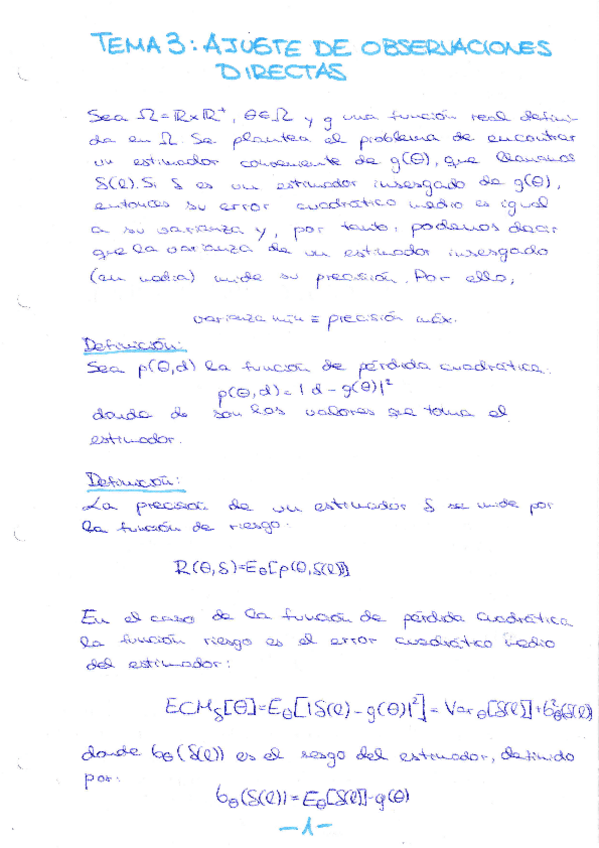 TEMA 3: AJUSTE DE OBSERVACIONES
DIRECTAS
Sea Ω=ℝxℝ⁺, θ∈Ω y g una función real defini-
da en Ω. Se plantea el problema de encontrar
un estimador conveniente de g(θ), que llamamos
δ(l). Si δ es un estimador insesgado de g(θ),
entonces su error cuadrático medio es igual
a su varianza y, por tanto, podemos decir
que la varianza de un estimador insesgado
(en media) mide su precisión. Por ello,
varianza mín ≡ precisión máx.
Definición:
Sea ρ(θ,d) la función de pérdida cuadrática:
ρ(θ,d)=|d-g(θ)|²
donde d son los valores que toma el
estimador.
Definición:
La precisión de un estimador δ se mide por
la función de riesgo:
R(θ,δ)=E_θ[ρ(θ,δ(l))]
En el caso de la función de pérdida cuadrática
la función riesgo es el error cuadrático medio
del estimador:
ECM_δ[θ]=E_θ[|δ(l)-g(θ)|²]=Var_θ[δ(l)]+b²_θ(δ(l))
donde b_θ(δ(l)) es el sesgo del estimador, definido
por:
b_θ(δ(l))=E_θ[δ(l)]-g(θ)
-1-